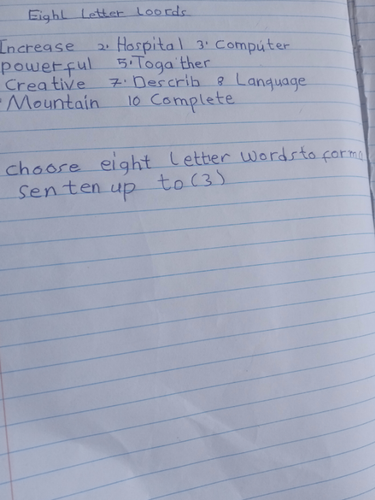 Eight Letter Loords
Increase 2. Hospital 3. Computer
powerful 5. Togather
Creative 7. Describ 8 Language
Mountain 10 Complete
choose eight letter words to form
senten up to (3)